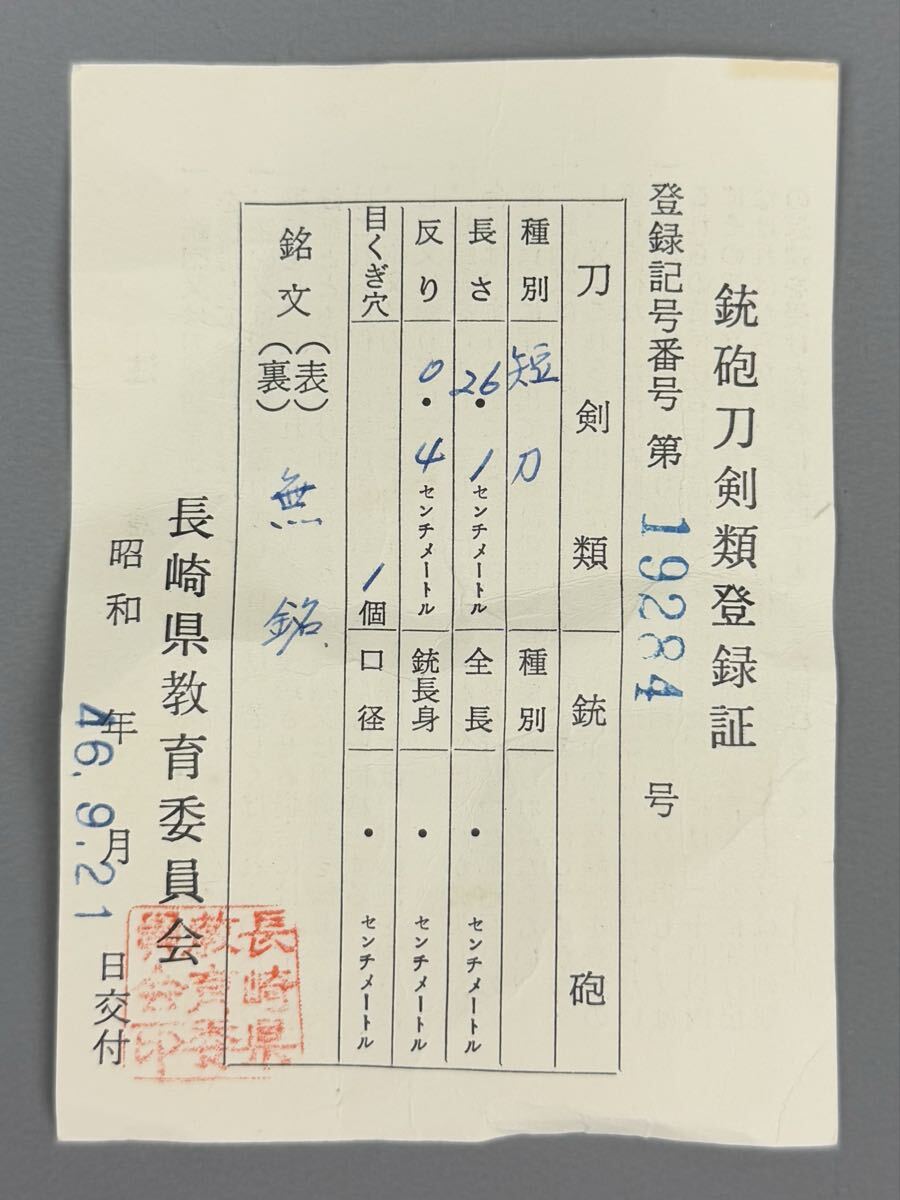 銃砲刀剣類登録証
登録記号番号 第 19284 号
刀剣類 銃砲
種別 短刀 種別
長さ 26.1センチメートル 全長 ・ センチメートル
反り 0.4センチメートル 銃身長 ・ センチメートル
目くぎ穴 1個 口径 ・ センチメートル
銘文 (表)
(裏) 無銘
長崎県教育委員会
昭和 年 月 日交付
46.9.21
長崎県
教育委
員会印